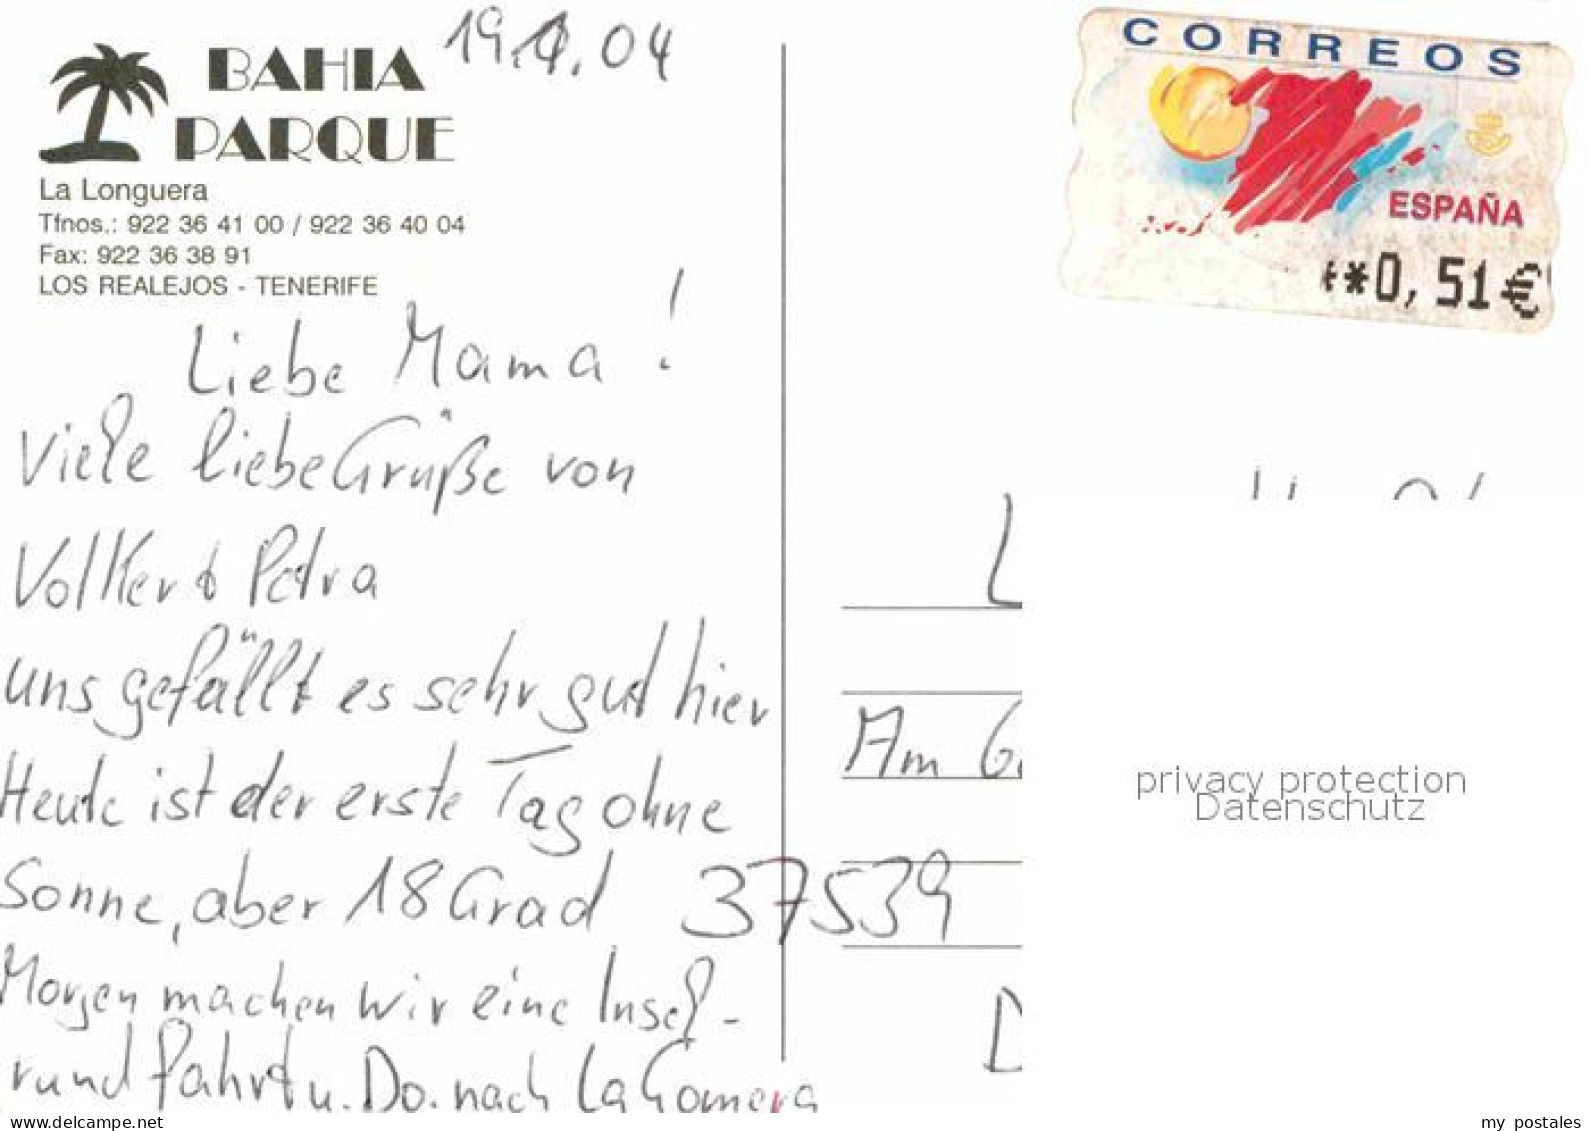 19.1.04
BAHIA
PARQUE
La Longuera
Tfnos.: 922 36 41 00 / 922 36 40 04
Fax: 922 36 38 91
LOS REALEJOS - TENERIFE
Liebe Mama!
Viele liebe Grüße von
Volker & Petra
uns gefällt es sehr gut hier
Heute ist der erste Tag ohne
Sonne, aber 18 Grad
Morgen machen wir eine Insel-
rundfahrt u. Do. nach La Gomera
CORREOS
ESPAÑA
**0,51€
L
Am G
37539
D
privacy protection
Datenschutz
www.delcampe.net
my_postales